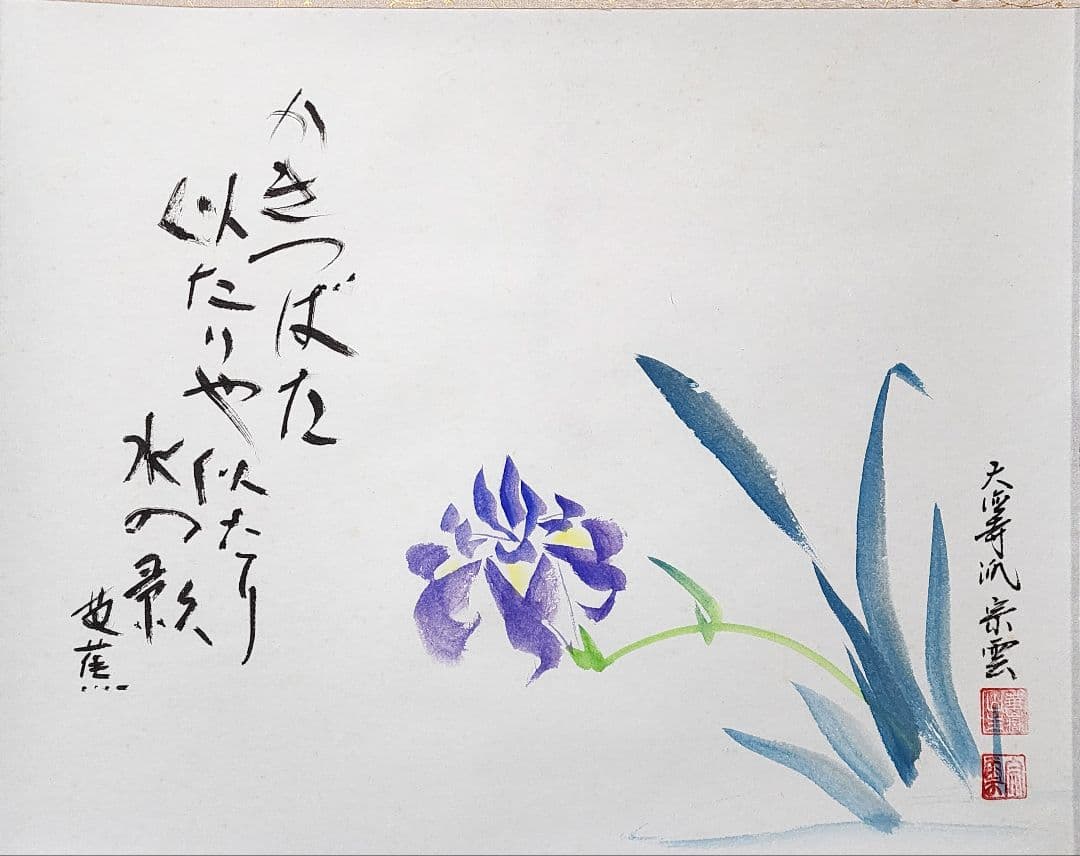 かきつばた
似たりや似たり
水の影
芭蕉
宗雲